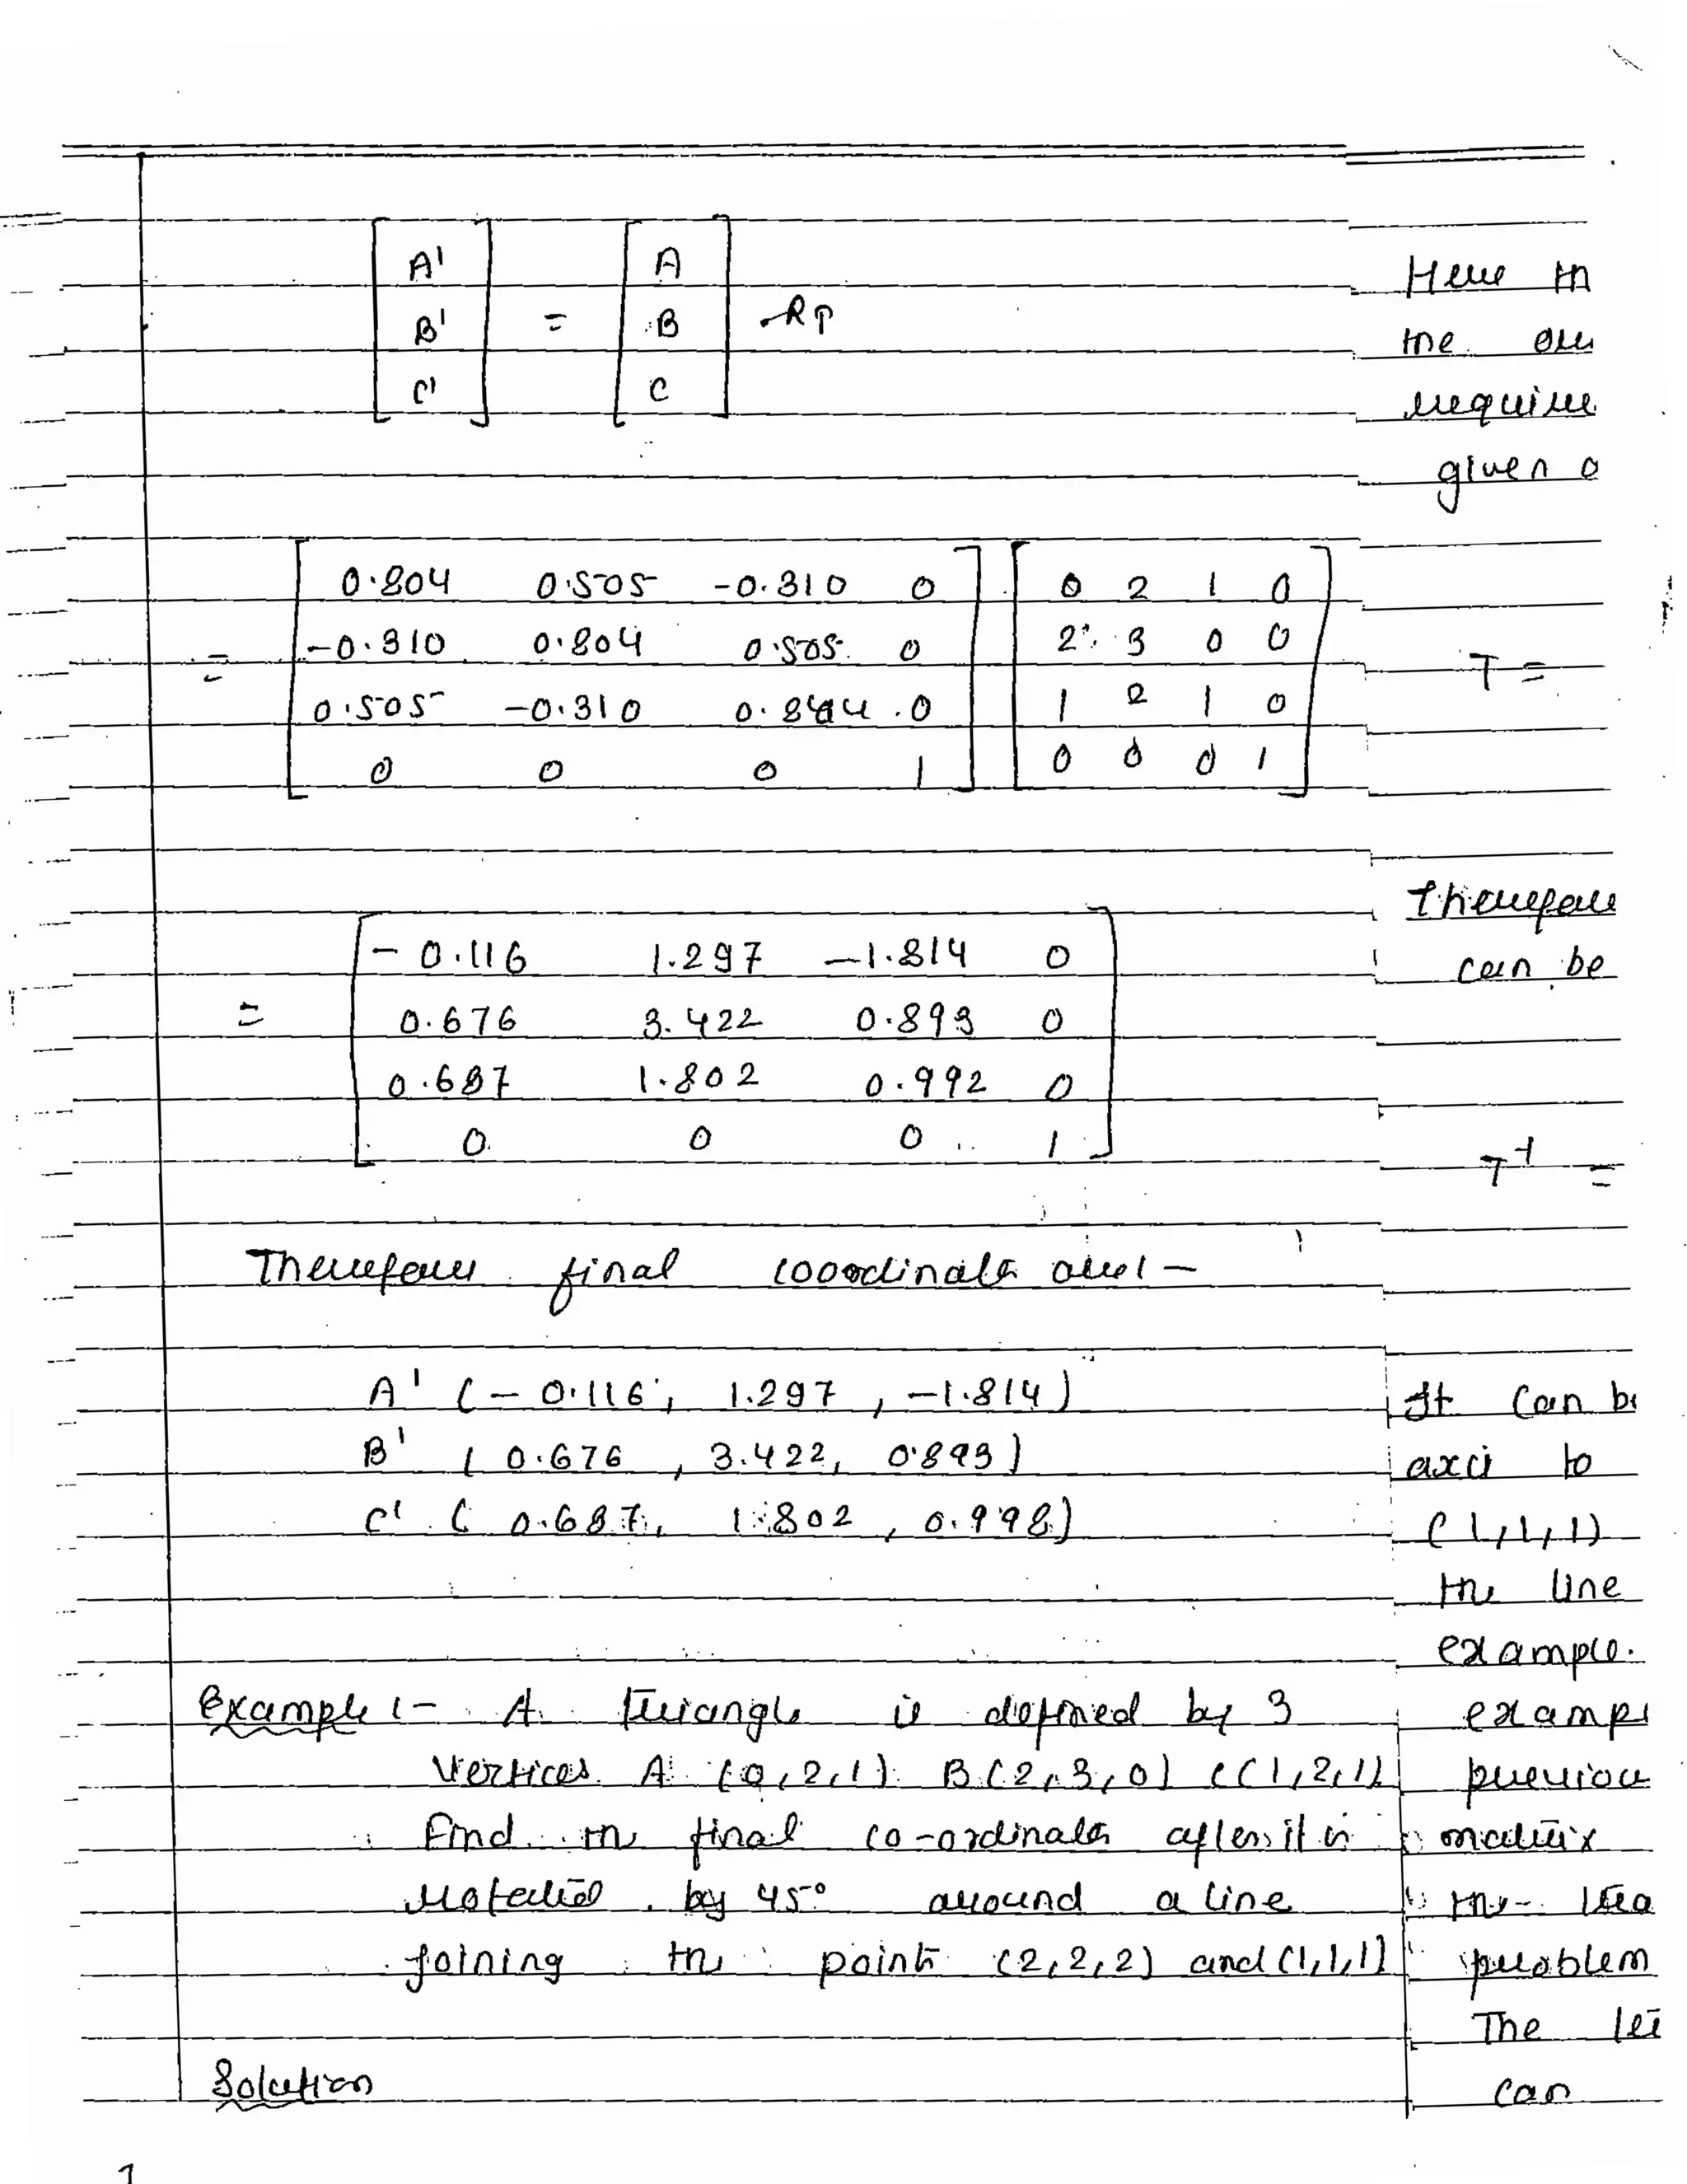 [A' B' C'] = [A B C] . RT
= [0.804 0.505 -0.310 0] [0 2 1 0]
[-0.310 0.804 0.505 0] [2 3 0 0]
[0.505 -0.310 0.804 0] [1 2 1 0]
[0 0 0 1] [0 0 0 1]
= [-0.116 1.297 -1.814 0]
[0.676 3.422 0.893 0]
[0.687 1.802 0.992 0]
[0 0 0 1]
Therefore final coordinates are :-
A' (-0.116, 1.297, -1.814)
B' (0.676, 3.422, 0.893)
C' (0.687, 1.802, 0.998)
Example :- A triangle is defined by 3
vertices A (0,2,1) B(2,3,0) C(1,2,1)
Find the final co-ordinates after it is
rotated by 45° around a line
joining the points (2,2,2) and (1,1,1)
Solution
Here th
the
require
given a
T =
Therefore
can be
T-1 =
It can be
axis to
(1,1,1)
the line
example.
exampl
previou
matrix
the
problem
The
can